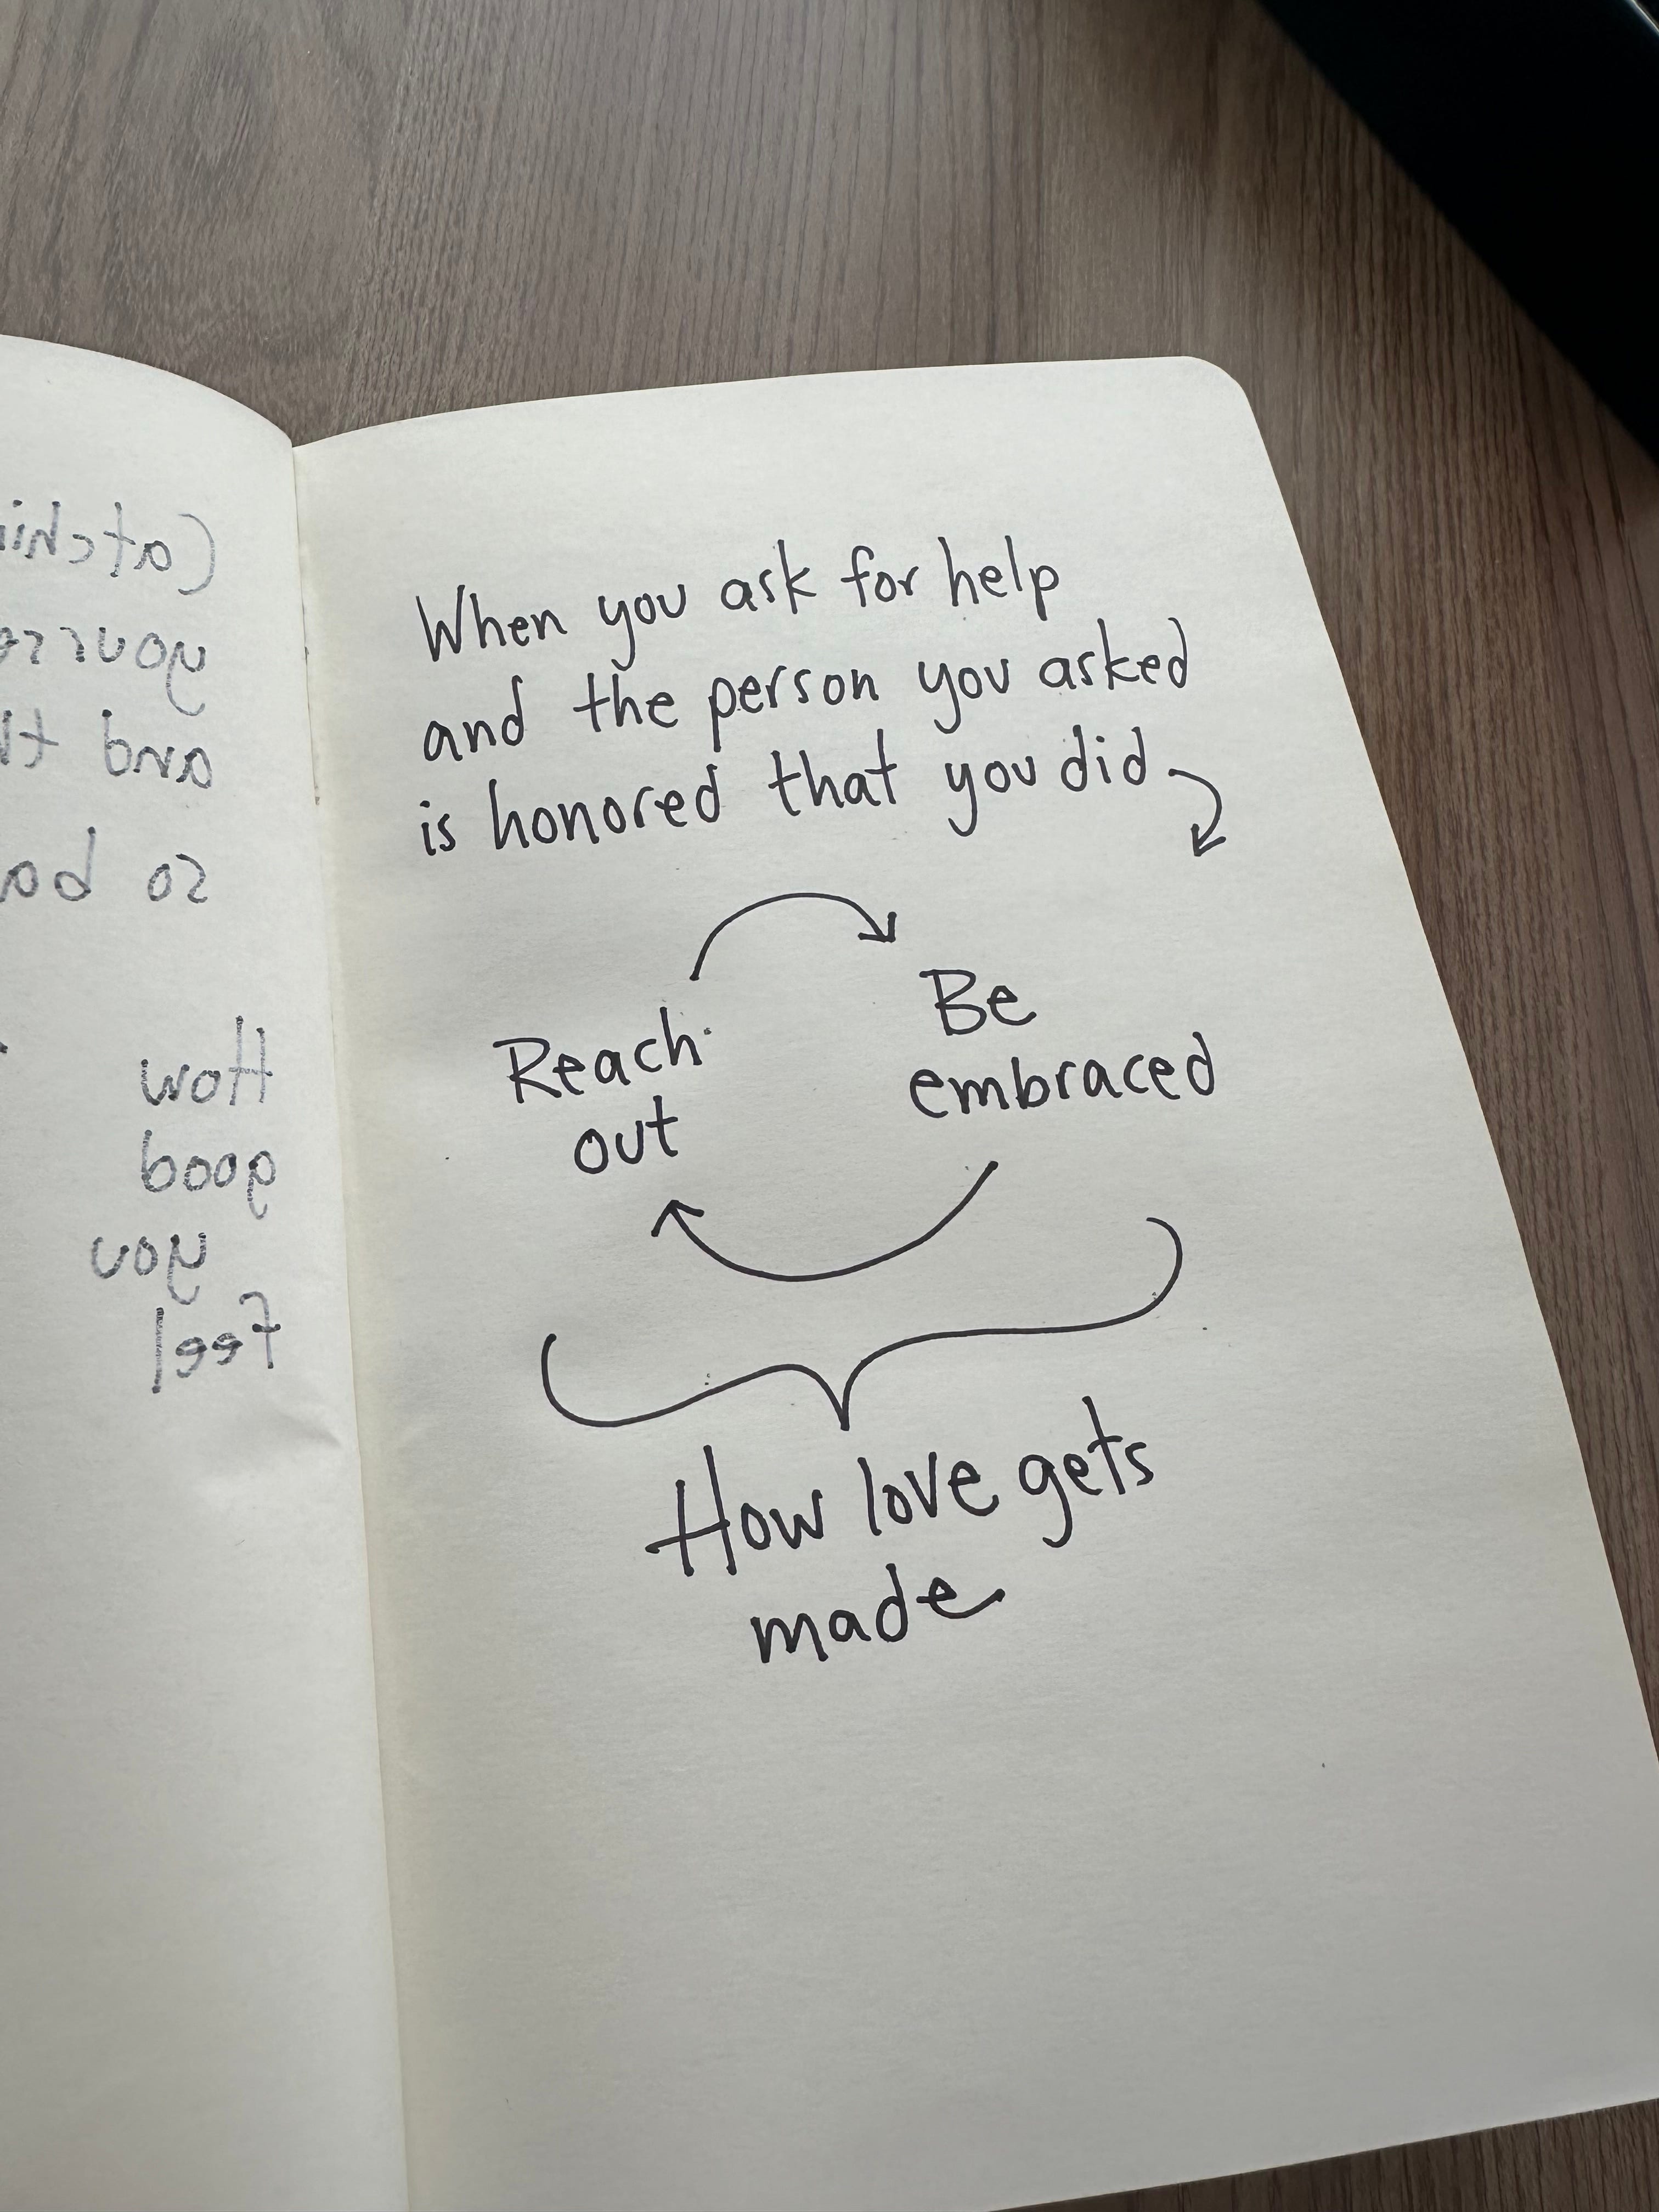 When you ask for help
and the person you asked
is honored that you did
Reach
out
Be
embraced
How love gets
made
How
good
you
feel
and
so